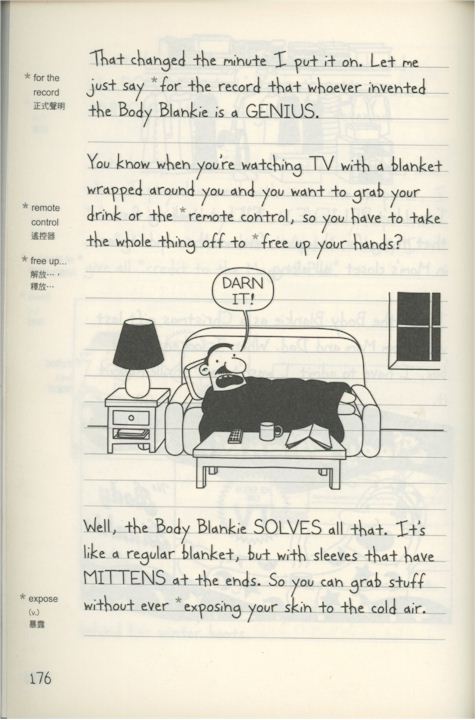 That changed the minute I put it on. Let me
just say *for the record that whoever invented
the Body Blankie is a GENIUS.
* for the
record
正式聲明
You know when you're watching TV with a blanket
wrapped around you and you want to grab your
drink or the *remote control, so you have to take
the whole thing off to *free up your hands?
* remote
control
遙控器
* free up...
解放…,
釋放…
DARN
IT!
Well, the Body Blankie SOLVES all that. It's
like a regular blanket, but with sleeves that have
MITTENS at the ends. So you can grab stuff
without ever *exposing your skin to the cold air.
* expose
(v.)
暴露
176